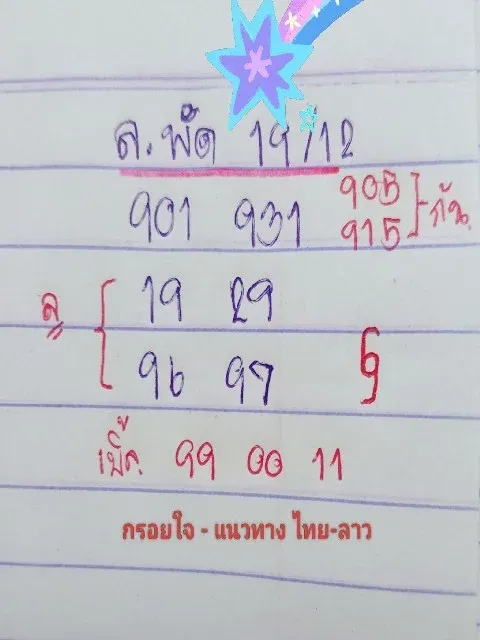 ล.พัด 19/12
901 931 905
915 กัน
ล 19 29
96 97
เบิ้ล. 99 00 11
กรอยใจ - แนวทาง ไทย-ลาว